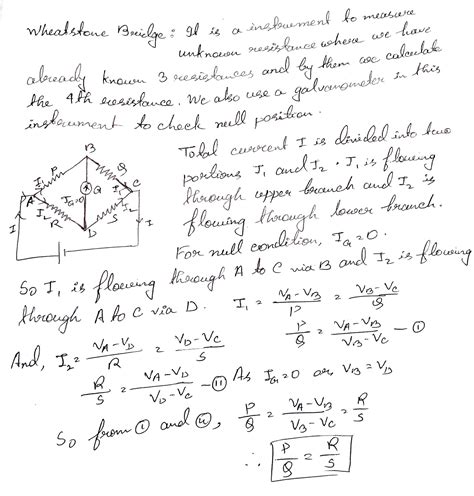 Wheatstone Bridge: It is a instrument to measure
unknown resistance where we have
already known 3 resistances and by them we calculate
the 4th resistance. We also use a galvanometer in this
instrument to check null position.
B
P
Q
I₁
I₁
A
I_G=0
G
C
I₂
I₂
R
S
D
I
I
Total current I is divided into two
portions I₁ and I₂. I₁ is flowing
through upper branch and I₂ is
flowing through lower branch.
For null condition, I_G = 0.
So I₁ is flowing through A to C via B and I₂ is flowing
through A to C via D. I₁ = (V_A - V_B)/P = (V_B - V_C)/Q
P/Q = (V_A - V_B)/(V_B - V_C) — ①
And, I₂ = (V_A - V_D)/R = (V_D - V_C)/S
R/S = (V_A - V_D)/(V_D - V_C) — ⑪ As I_G = 0 or V_B = V_D
So from ① and ⑪, P/Q = (V_A - V_B)/(V_B - V_C) = R/S
∴ P/Q = R/S